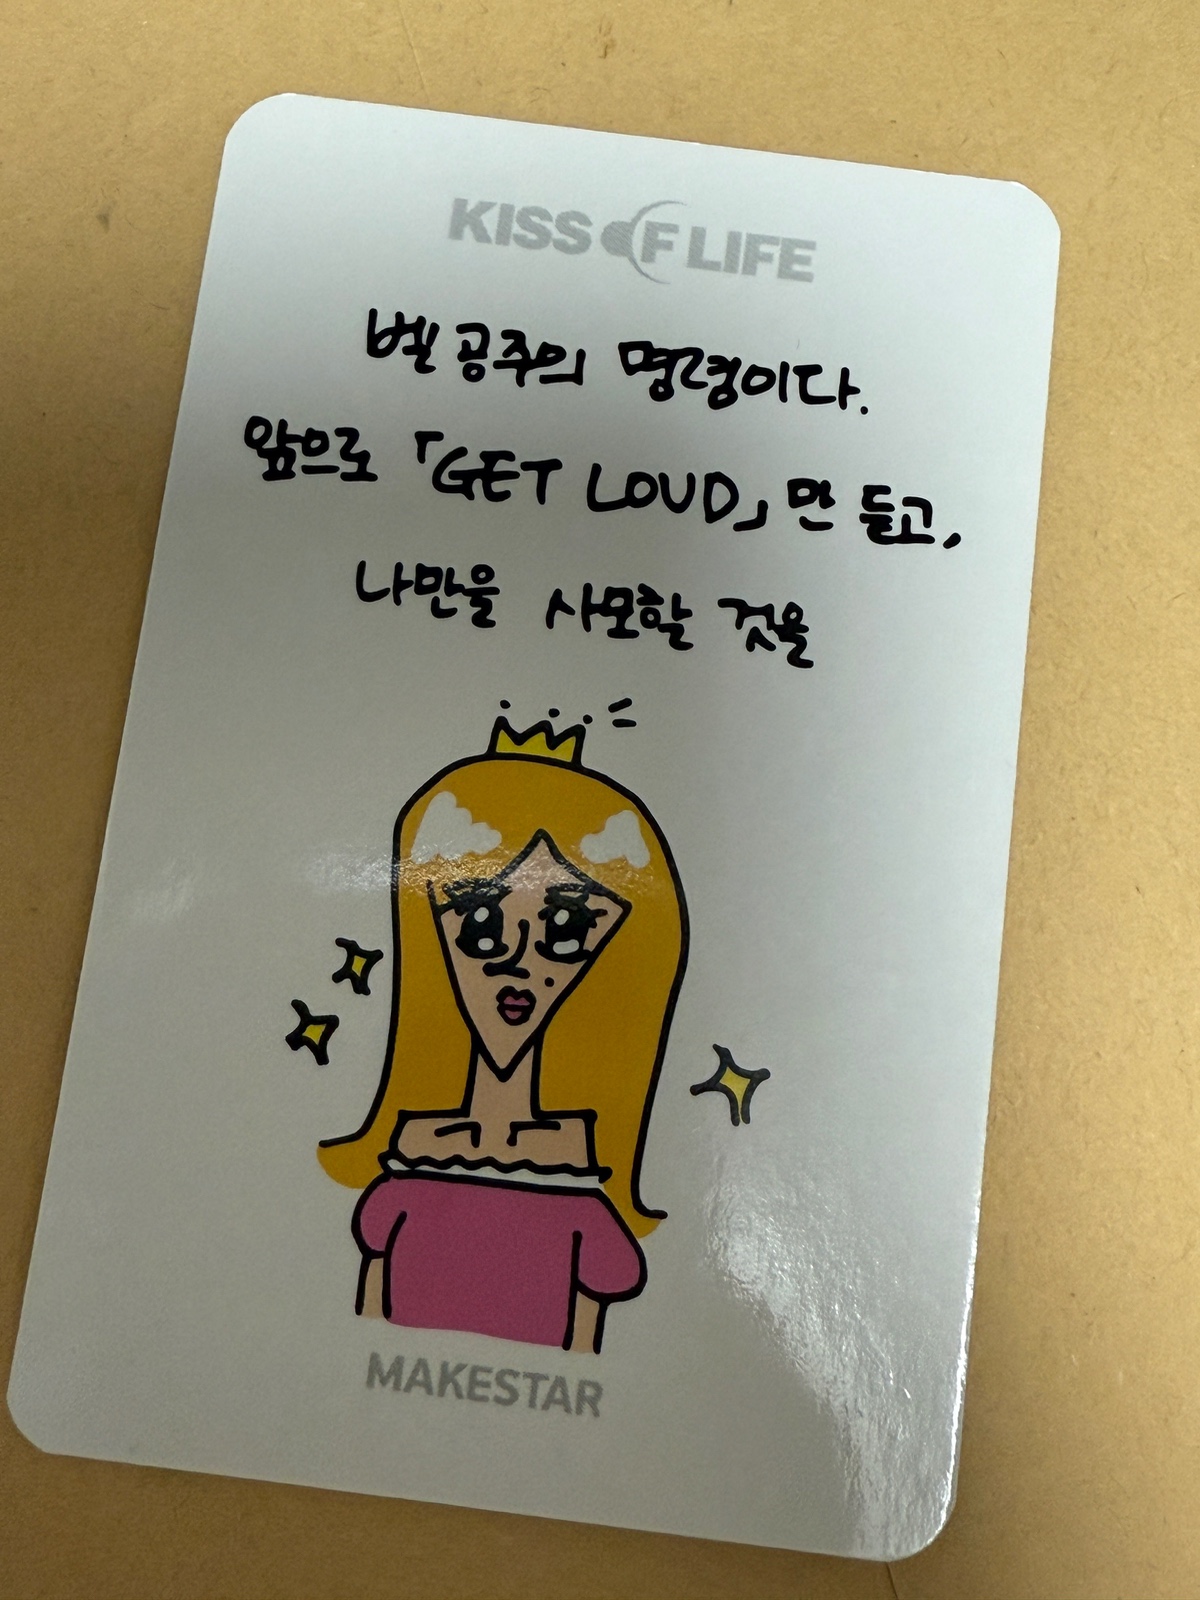 KISS OF LIFE
벨 공주의 명령이다.
앞으로 「GET LOUD」만 듣고,
나만을 사모할 것을
MAKESTAR